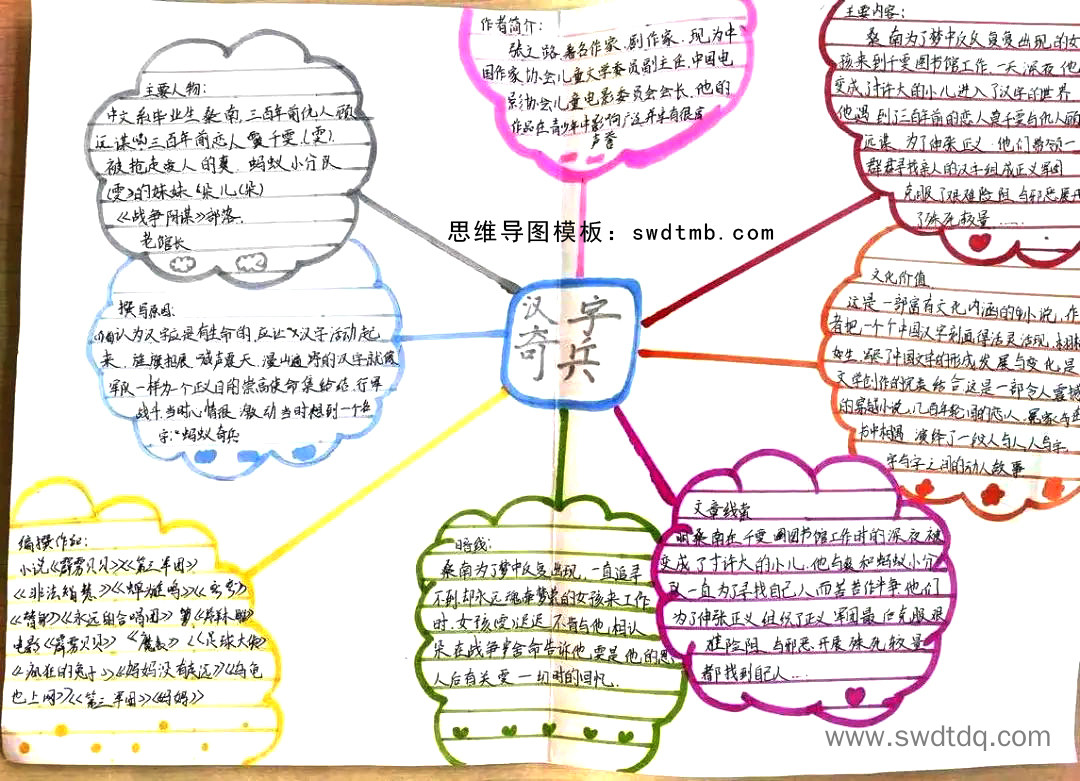 主要人物：
中文系毕业生桑南，三百年前仇人顾
远谋 三百年前恋人 千雯（雯）
被抢走女人的 蚂蚁小分队
（雯）的妹妹 朵儿（朵）
《战争阴谋》部落、
老馆长
作者简介：
张之路 著名作家、剧作家，现为中
国作家协会儿童文学委员副主任，中国电
影协会儿童电影委员会会长，他的
作品在青少年中影响广泛并享有很高
声誉
主要内容：
桑南为了梦中反反复复出现的女
孩来到千雯图书馆工作，一天深夜他
变成寸许大的小儿进入了汉字的世界
他遇到了三百年前的恋人 千雯与仇人顾
远谋 为了伸张正义，他们带领一
群 寻找亲人的汉字组成正义军团
克服了艰难险阻 与邪恶展开
了殊死较量……
思维导图模板：swdtmb.com
汉字
奇兵
撰写原因：
认为汉字应是有生命的，应让 汉字活动起
来， 声震天，漫山遍野的汉字就像
军队一样为一个正义目的崇高使命集给结、行军
战斗，当时心情很激动 当时想到一个名
字：“蚂蚁奇兵
文化价值
这是一部富有文化内涵的小说，作
者把一个个中国汉字刻画得活灵活现，
女生， 了中国文字的形成发展与变化 是
文学创作的完美结合 这是一部令人震撼
的 小说，几百年轮回的恋人、冤家
书中相遇 演绎了一段人与人、人与字、
字与字之间的动人故事
编撰作品：
小说《霹雳贝贝》《第三军团》
《非法智慧》《蝉为谁鸣》
《替身》《永远的合唱团》
电影《霹雳贝贝》《魔表》《足球大侠》
《疯狂的兔子》《妈妈没有走远》
也上网》《第三军团》《妈妈》
暗线：
桑南为了梦中反复出现，一直追寻
不到却永远魂牵梦萦的女孩来工作
时，女孩（雯）迟迟不肯与他相认
朵在战争中舍命告诉他 雯是他的恋
人后有关雯一切时的回忆．
文章线索
桑南在千雯 图书馆工作时的深夜被
变成了寸许大的小儿，他与 和蚂蚁小分
队一直为了寻找自己人而苦苦作斗争 他们
为了伸张正义 组织了正义军团最后克服艰
难险阻，与邪恶开展殊死较量
都找到自己人…．
www.swdtdq.com